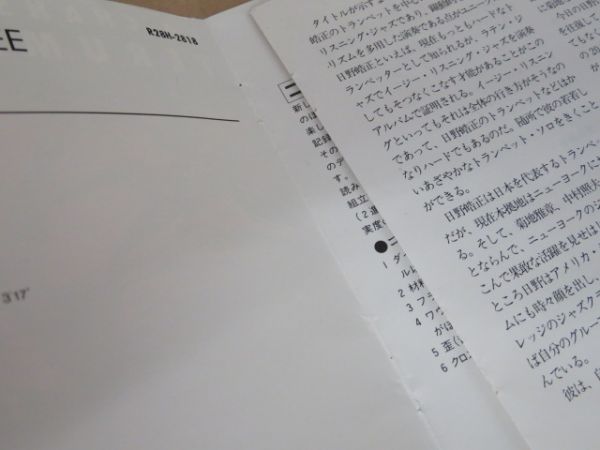 EE
R28H-2818
3'17"
新し
のは
楽し
記録
その
のデ
す。
読み
組立
(2進
実度
1 ダ
ルム
2 材料
3 フラ
4 ワウ
がほ
5 歪(
6 クロ
タイトルが示すよ
皓正のトランペットを中心
リスニング・ジャズであり、
リズムを多用した演奏である点がユニーク
日野皓正といえば、現在もっともハードなト
ランペッターとして知られるが、ラテン・ジ
ャズでイージー・リスニング・ジャズを演奏
してもそつなくこなすす能があることがこの
アルバムで証明される。イージー・リスニン
グといってもそれは全体の行き方がそうなの
であって、日野皓正のトランペットなどはか
なりハードでもあるのだ。随所で彼の若若し
いあざやかなトランペット・ソロをきくこと
ができる。
日野皓正は日本を代表するトランペッ
だが、現在本拠地はニューヨークにな
る。そして、菊地雅章、中村照夫
とならんで、ニューヨークのジ
こんで果敢な活躍を見せはじ
ところ日野はアメリカ・
ムにも時々顔を出し、
レッジのジャズクラ
ば自分のグルー
んでいる。
彼は、
に菊地
今日の日野
ても
の20